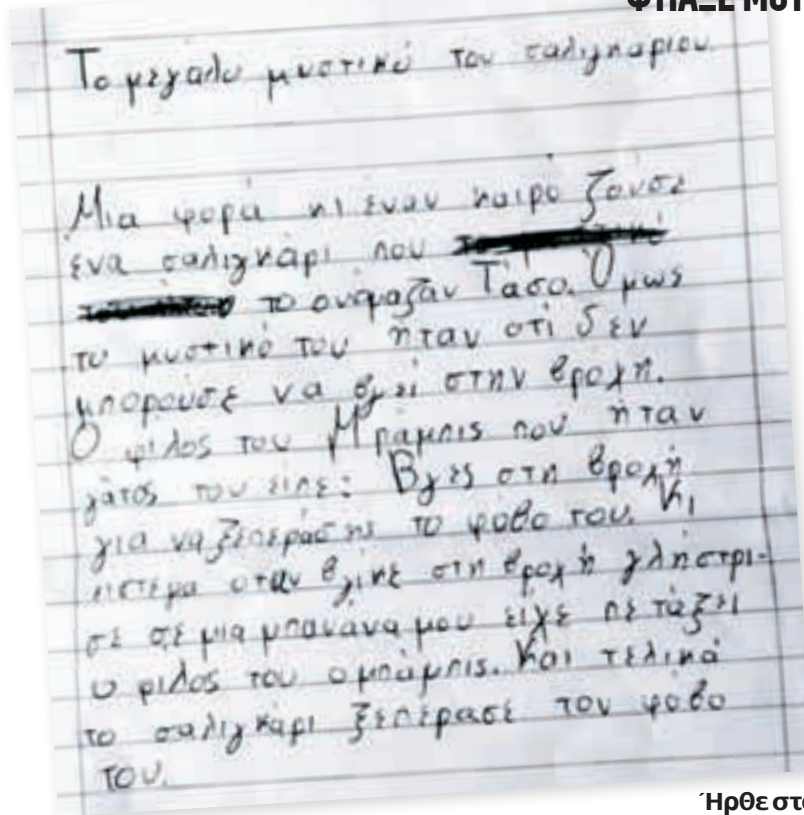 ΦΤΙΑΞΕ ΜΟΥ
Το μεγάλο μυστικό του σαλιγκαριου.
Μια φορά κι έναν καιρό ζούσε
ένα σαλιγκάρι που
το ονόμαζαν Τάσο. Όμως
το μυστικό του ήταν οτί δεν
μπορούσε να βγεί στην βροχή.
Ο φιλος του Μπάμπις που ήταν
γάτος του είπε: Βγές στη βροχή
για να ξεπεράσης το φόβο του. Κι
πιστεμα οταν βγίκε στη βροχή γλήστρι-
σε σε μια μπανάνα μου είχε πετάξει
ο φιλος του ο μπάμπις. Και τελικά
το σαλιγκάρι ξεπέρασε τον φόβο
του.
Ήρθε στο